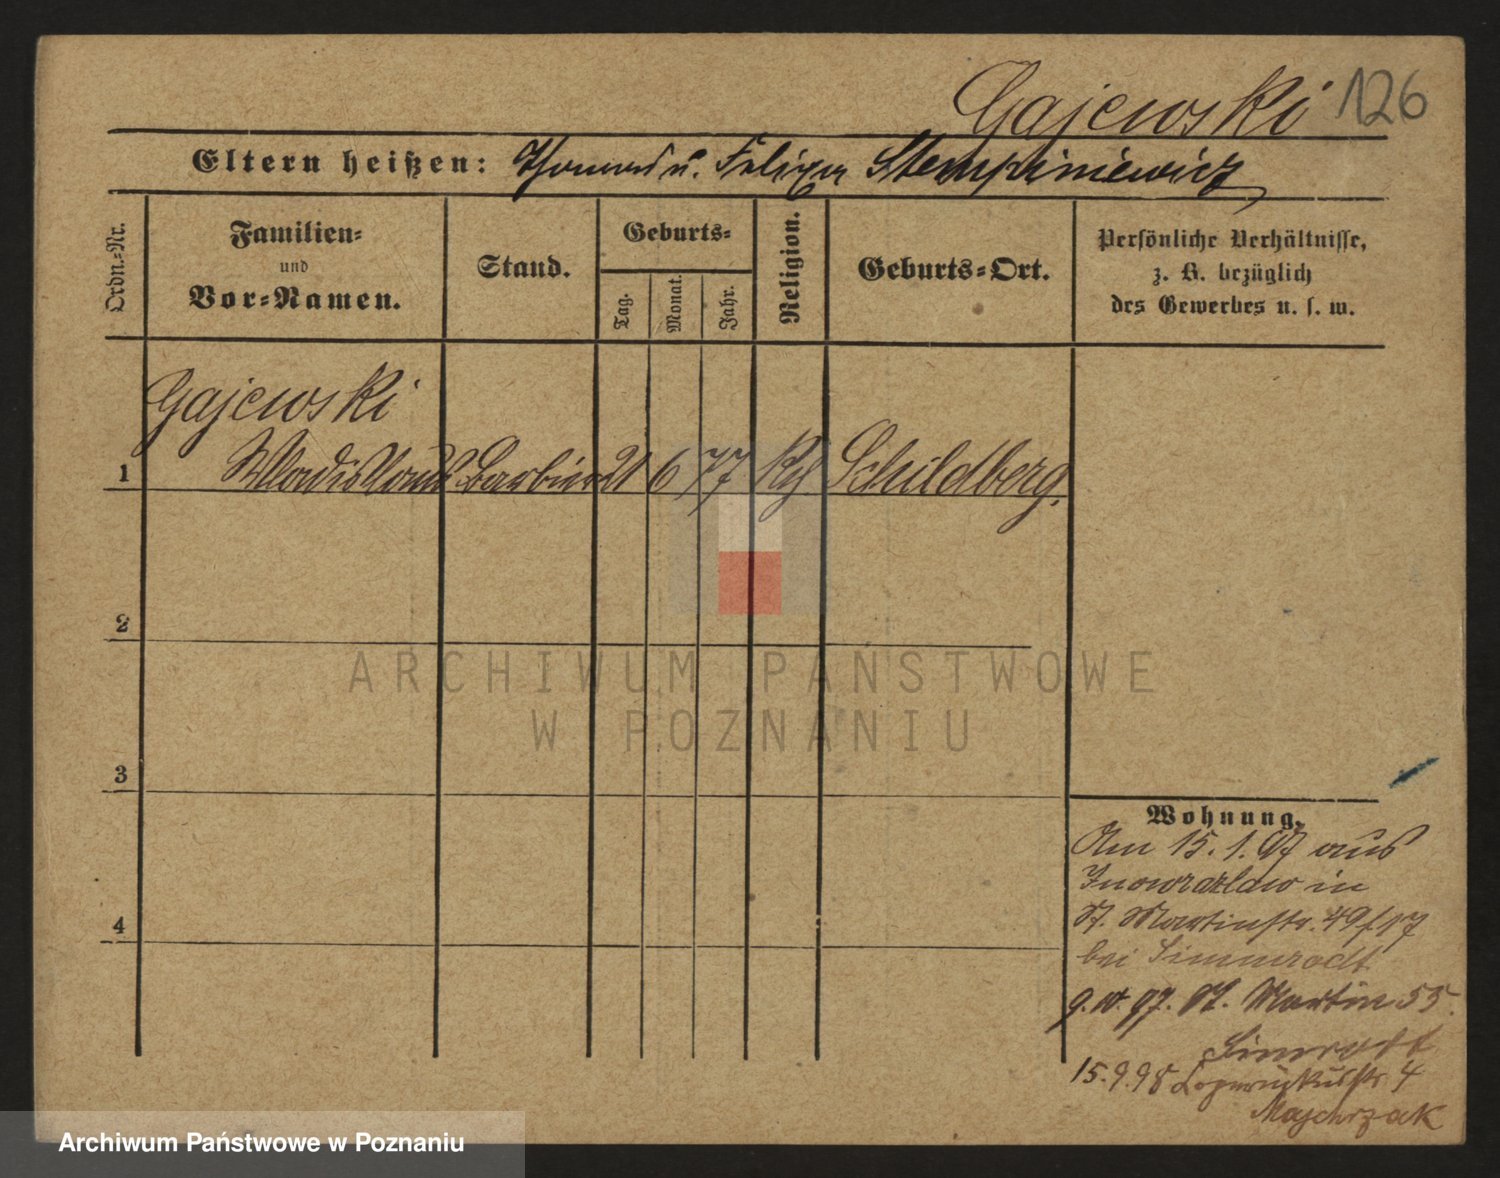 Gajewski 126
Eltern heißen: Thomas u. Felixa Stempiniewicz
Ordn.-Nr.
Familien-
und
Vor-Namen.
Stand.
Geburts-
Tag.
Monat.
Jahr.
Religion.
Geburts-Ort.
Persönliche Verhältnisse,
z. B. bezüglich
des Gewerbes u. s. w.
Gajewski
1 Wladislaus Barbier 21 6 77 Kth Schildberg.
2
3
4
ARCHIWUM PAŃSTWOWE
W POZNANIU
Wohnung.
Am 15.1.97 aus
Inowrazlaw in
St. Martinstr. 49/17
bei Simmrodt
9. 97. St. Martin 55.
Simrodt
15.9.98 4
Majchrzak
Archiwum Państwowe w Poznaniu